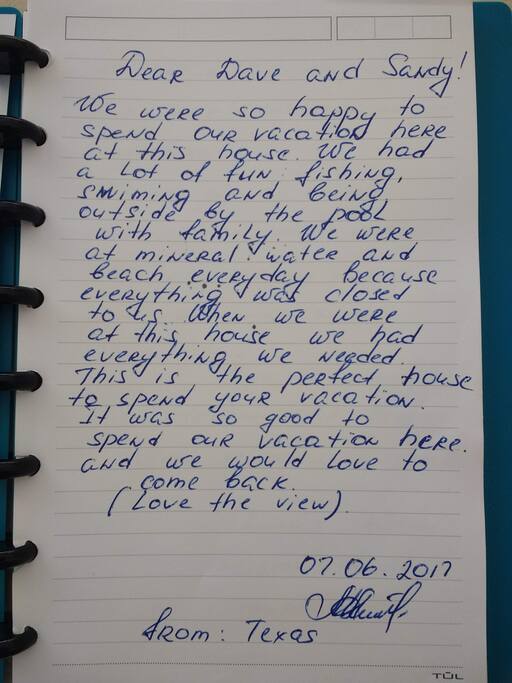 Dear Dave and Sandy!
We were so happy to
spend our vacation here
at this house. We had
a lot of fun: fishing,
swiming and being
outside by the pool
with family. We were
at mineral water and
beach everyday because
everything was closed
to us. When we were
at this house we had
everything we needed.
This is the perfect house
to spend your vacation.
It was so good to
spend our vacation here.
and we would love to
come back.
(Love the view).
07.06.2017
from: Texas
TUL